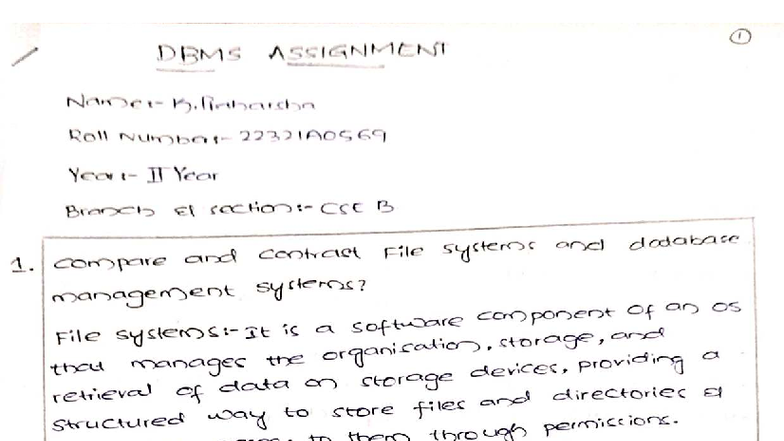 1
DBMS ASSIGNMENT
Name:- K.
Roll Number:- 22321A0569
Year:- II Year
Branch & section:- CSE B
1. compare and contract File systems and database
management systems?
File systems:- It is a software component of an os
that manages the organisation, storage, and
retrieval of data on storage devices, providing a
structured way to store files and directories &
to them through permissions.